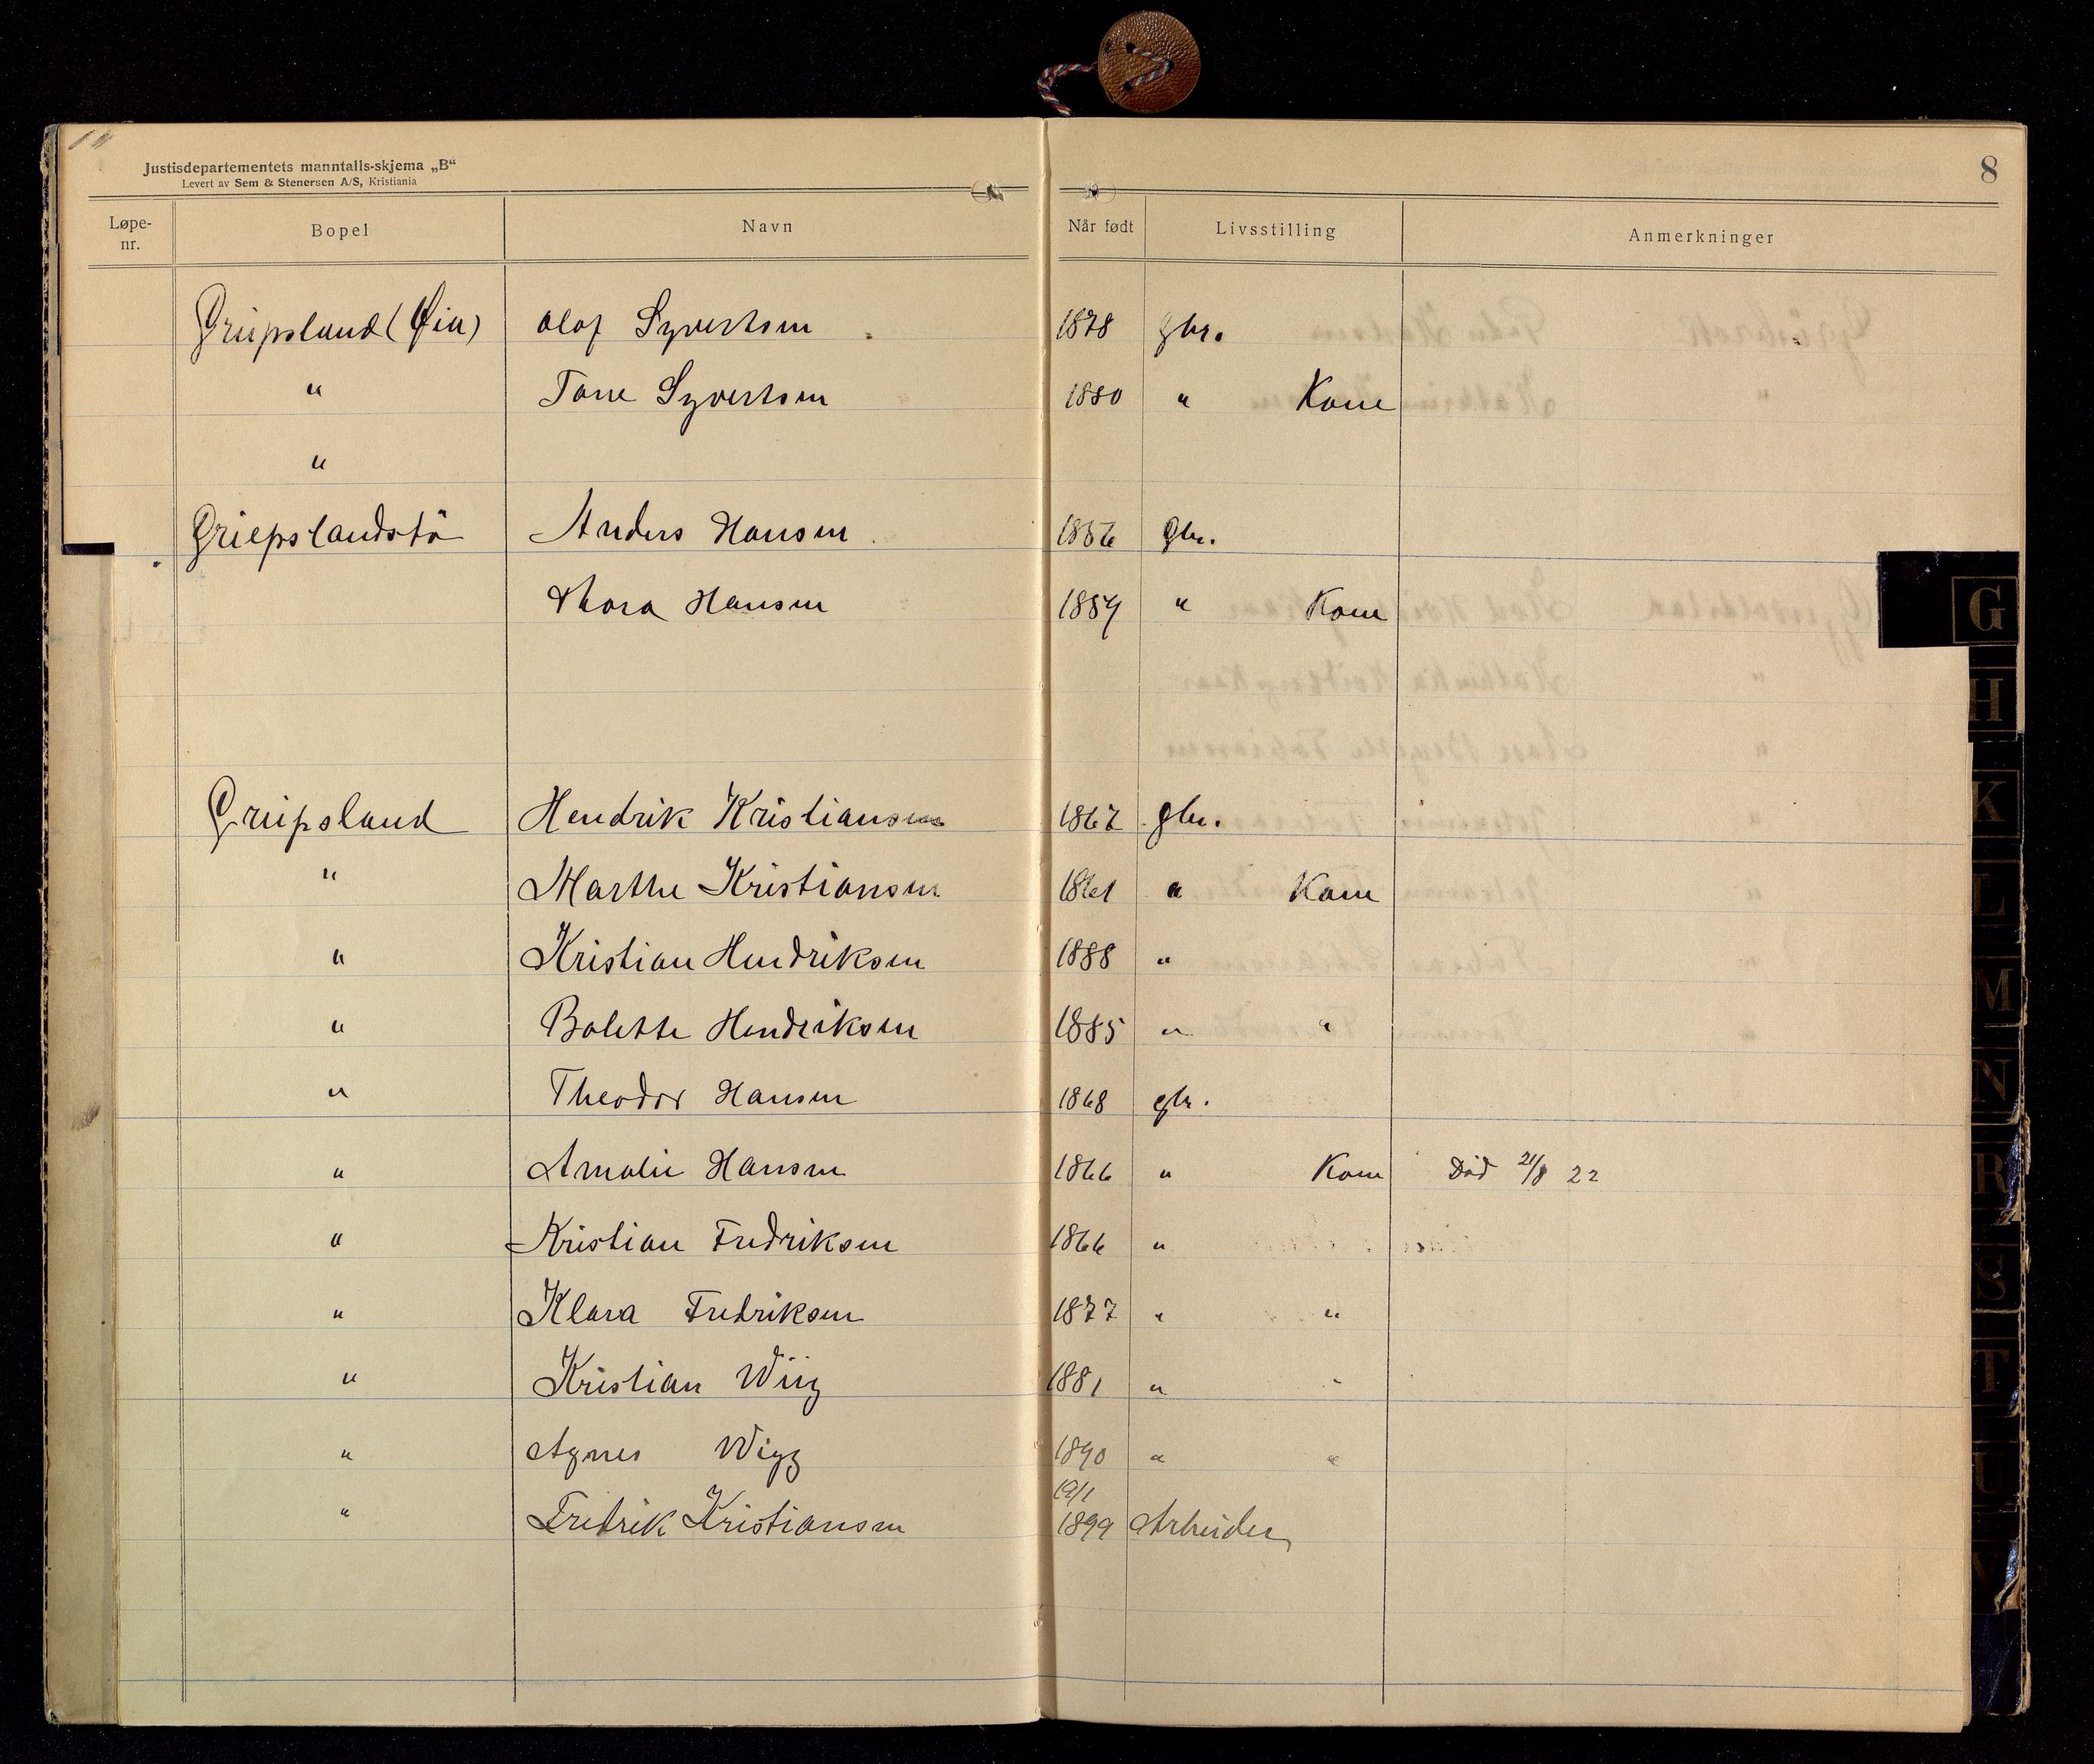 Justisdepartementets manntalls-skjema „B“
Levert av Sem & Stenersen A/S, Kristiania
8
Løpe-nr. Bopel Navn Når født Livsstilling Anmerkninger
Griipsland (Øia) Olaf Syvertsen 1878 gbr.
" Tone Syvertsen 1880 " Kone
"
Griepslandstö Anders Hansen 1856 gbr.
Thora Hansen 1859 " Kone
Griipsland Hendrik Kristiansen 1867 gbr.
" Marthe Kristiansen 1861 " Kone
" Kristian Hendriksen 1888 "
" Bolette Hendriksen 1885 " "
" Theodor Hansen 1868 gbr.
" Amalie Hansen 1866 " Kone Död 21/8 22
" Kristian Fredriksen 1866 "
" Klara Fredriksen 1877 " "
" Kristian Wiig 1881 " "
" Agnes Wigg 1890 " "
" Fredrik Kristiansen 19/1 1899 Arbeider
G
H
K
L
M
N
R
S
T
U
V